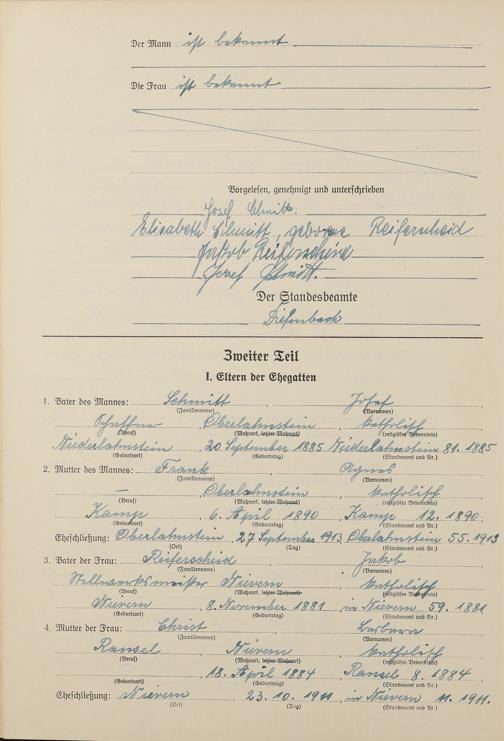 Der Mann ist bekannt
Die Frau ist bekannt
Vorgelesen, genehmigt und unterschrieben
Josef Schmitt.
Elisabeth Schmitt, geborene Reiferscheid
Jakob Reiferscheid
Josef Schmitt.
Der Standesbeamte
Diefenbach
Zweiter Teil
I. Eltern der Ehegatten
1. Vater des Mannes: Schmitt, Josef
(Familienname) (Vornamen)
Schaffner Oberlahnstein, katholisch
(Beruf) (Wohnort, letzter Wohnort) (religiöses Bekenntnis)
Niederlahnstein 20 September 1885 Niederlahnstein 81. 1885
(Geburtsort) (Geburtstag) (Standesamt und Nr.)
2. Mutter des Mannes: Frank, Agnes
(Familienname) (Vornamen)
– Oberlahnstein, katholisch
(Beruf) (Wohnort, letzter Wohnort) (religiöses Bekenntnis)
Kamp, 6. April 1890, Kamp 12. 1890.
(Geburtsort) (Geburtstag) (Standesamt und Nr.)
Eheschließung: Oberlahnstein 27 September 1913, Oberlahnstein 55. 1913
(Ort) (Tag) (Standesamt und Nr.)
3. Vater der Frau: Reiferscheid, Jakob
(Familienname) (Vornamen)
Walzwerksmeister Nievern, katholisch
(Beruf) (Wohnort, letzter Wohnort) (religiöses Bekenntnis)
Nievern, 8. November 1881, in Nievern 59. 1881
(Geburtsort) (Geburtstag) (Standesamt und Nr.)
4. Mutter der Frau: Christ, Barbara
(Familienname) (Vornamen)
Ransel, Nievern, katholisch
(Beruf) (Wohnort, letzter Wohnort) (religiöses Bekenntnis)
18. April 1884, Ransel 8. 1884
(Geburtsort) (Geburtstag) (Standesamt und Nr.)
Eheschließung: Nievern, 23. 10. 1911, in Nievern 11. 1911.
(Ort) (Tag) (Standesamt und Nr.)